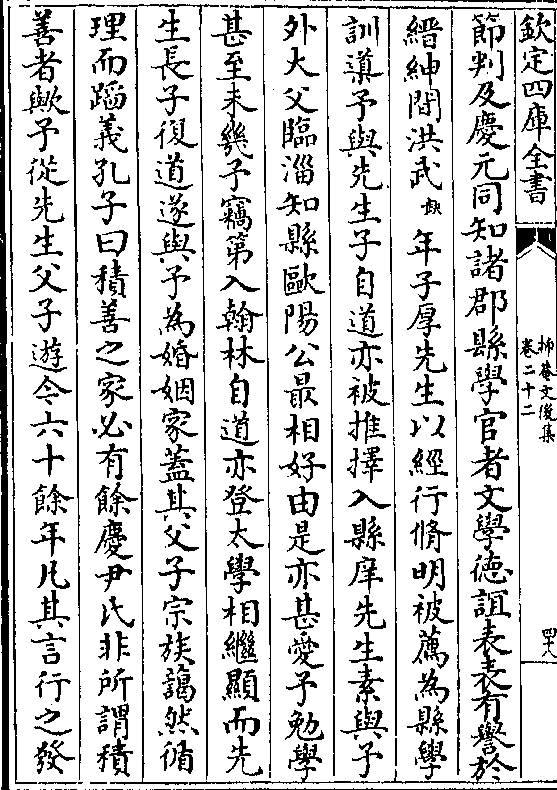 欽定四庫全書
抑菴文後集
卷二十二
四十八
節判及慶元同知諸郡縣學官者文學徳誼表表有譽於
縉紳間洪武缺年子厚先生以經行脩明被薦為縣學
訓導予與先生子自道亦被推擇入縣庠先生素與予
外大父臨淄知縣歐陽公最相好由是亦甚愛予勉學
甚至未幾予竊第入翰林自道亦登太學相繼顯而先
生長子復道遂與予為婚姻家蓋其父子宗族藹然循
理而蹈義孔子曰積善之家必有餘慶尹氏非所謂積
善者歟予從先生父子遊今六十餘年凡其言行之發